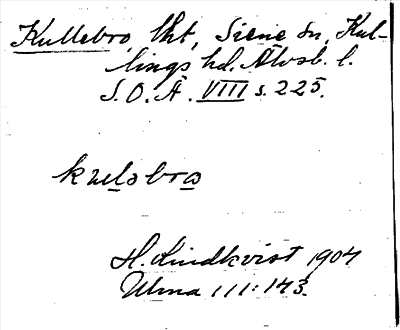 Kullebro, lht, Siene sn, Kul-
lings hd. Älvsb. l.
S.O.Ä. VIII s. 225.
kuelsbro
H. Lindkvist 1904
Ulma 111:143.